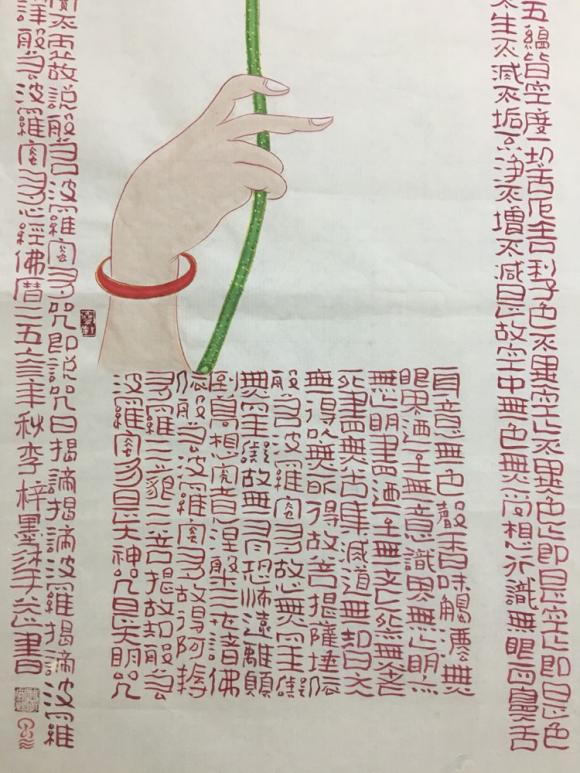 五縕皆空度一切苦厄舍利子色不異空〻不異色〻即是空〻即是色
不生不滅不垢不淨不增不減是故空中無色無受想行識無眼耳鼻舌
身意無色聲香味觸法無
眼界迺至無意識界無〻明亦
無〻明盡迺至無老死亦無老
死盡無苦集滅道無知亦
無得以無所得故菩提薩埵依
般若波羅蜜多故心無罣礙
無罣礙故無有恐怖遠離顛
倒夢想究竟涅槃三世諸佛
依般若波羅蜜多故得阿耨
多羅三藐三菩提故知般若
波羅蜜多是大神咒是大明咒
實不虛故說般若波羅蜜多咒即說咒曰揭諦揭諦波羅揭諦波羅
般若波羅蜜多心經佛曆二五六年秋李梓墨沐手敬書